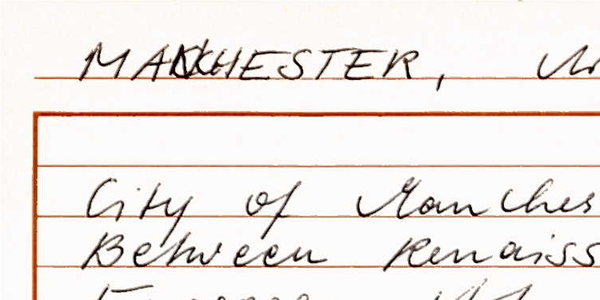 MANCHESTER,
City of Manches
Between Renaiss